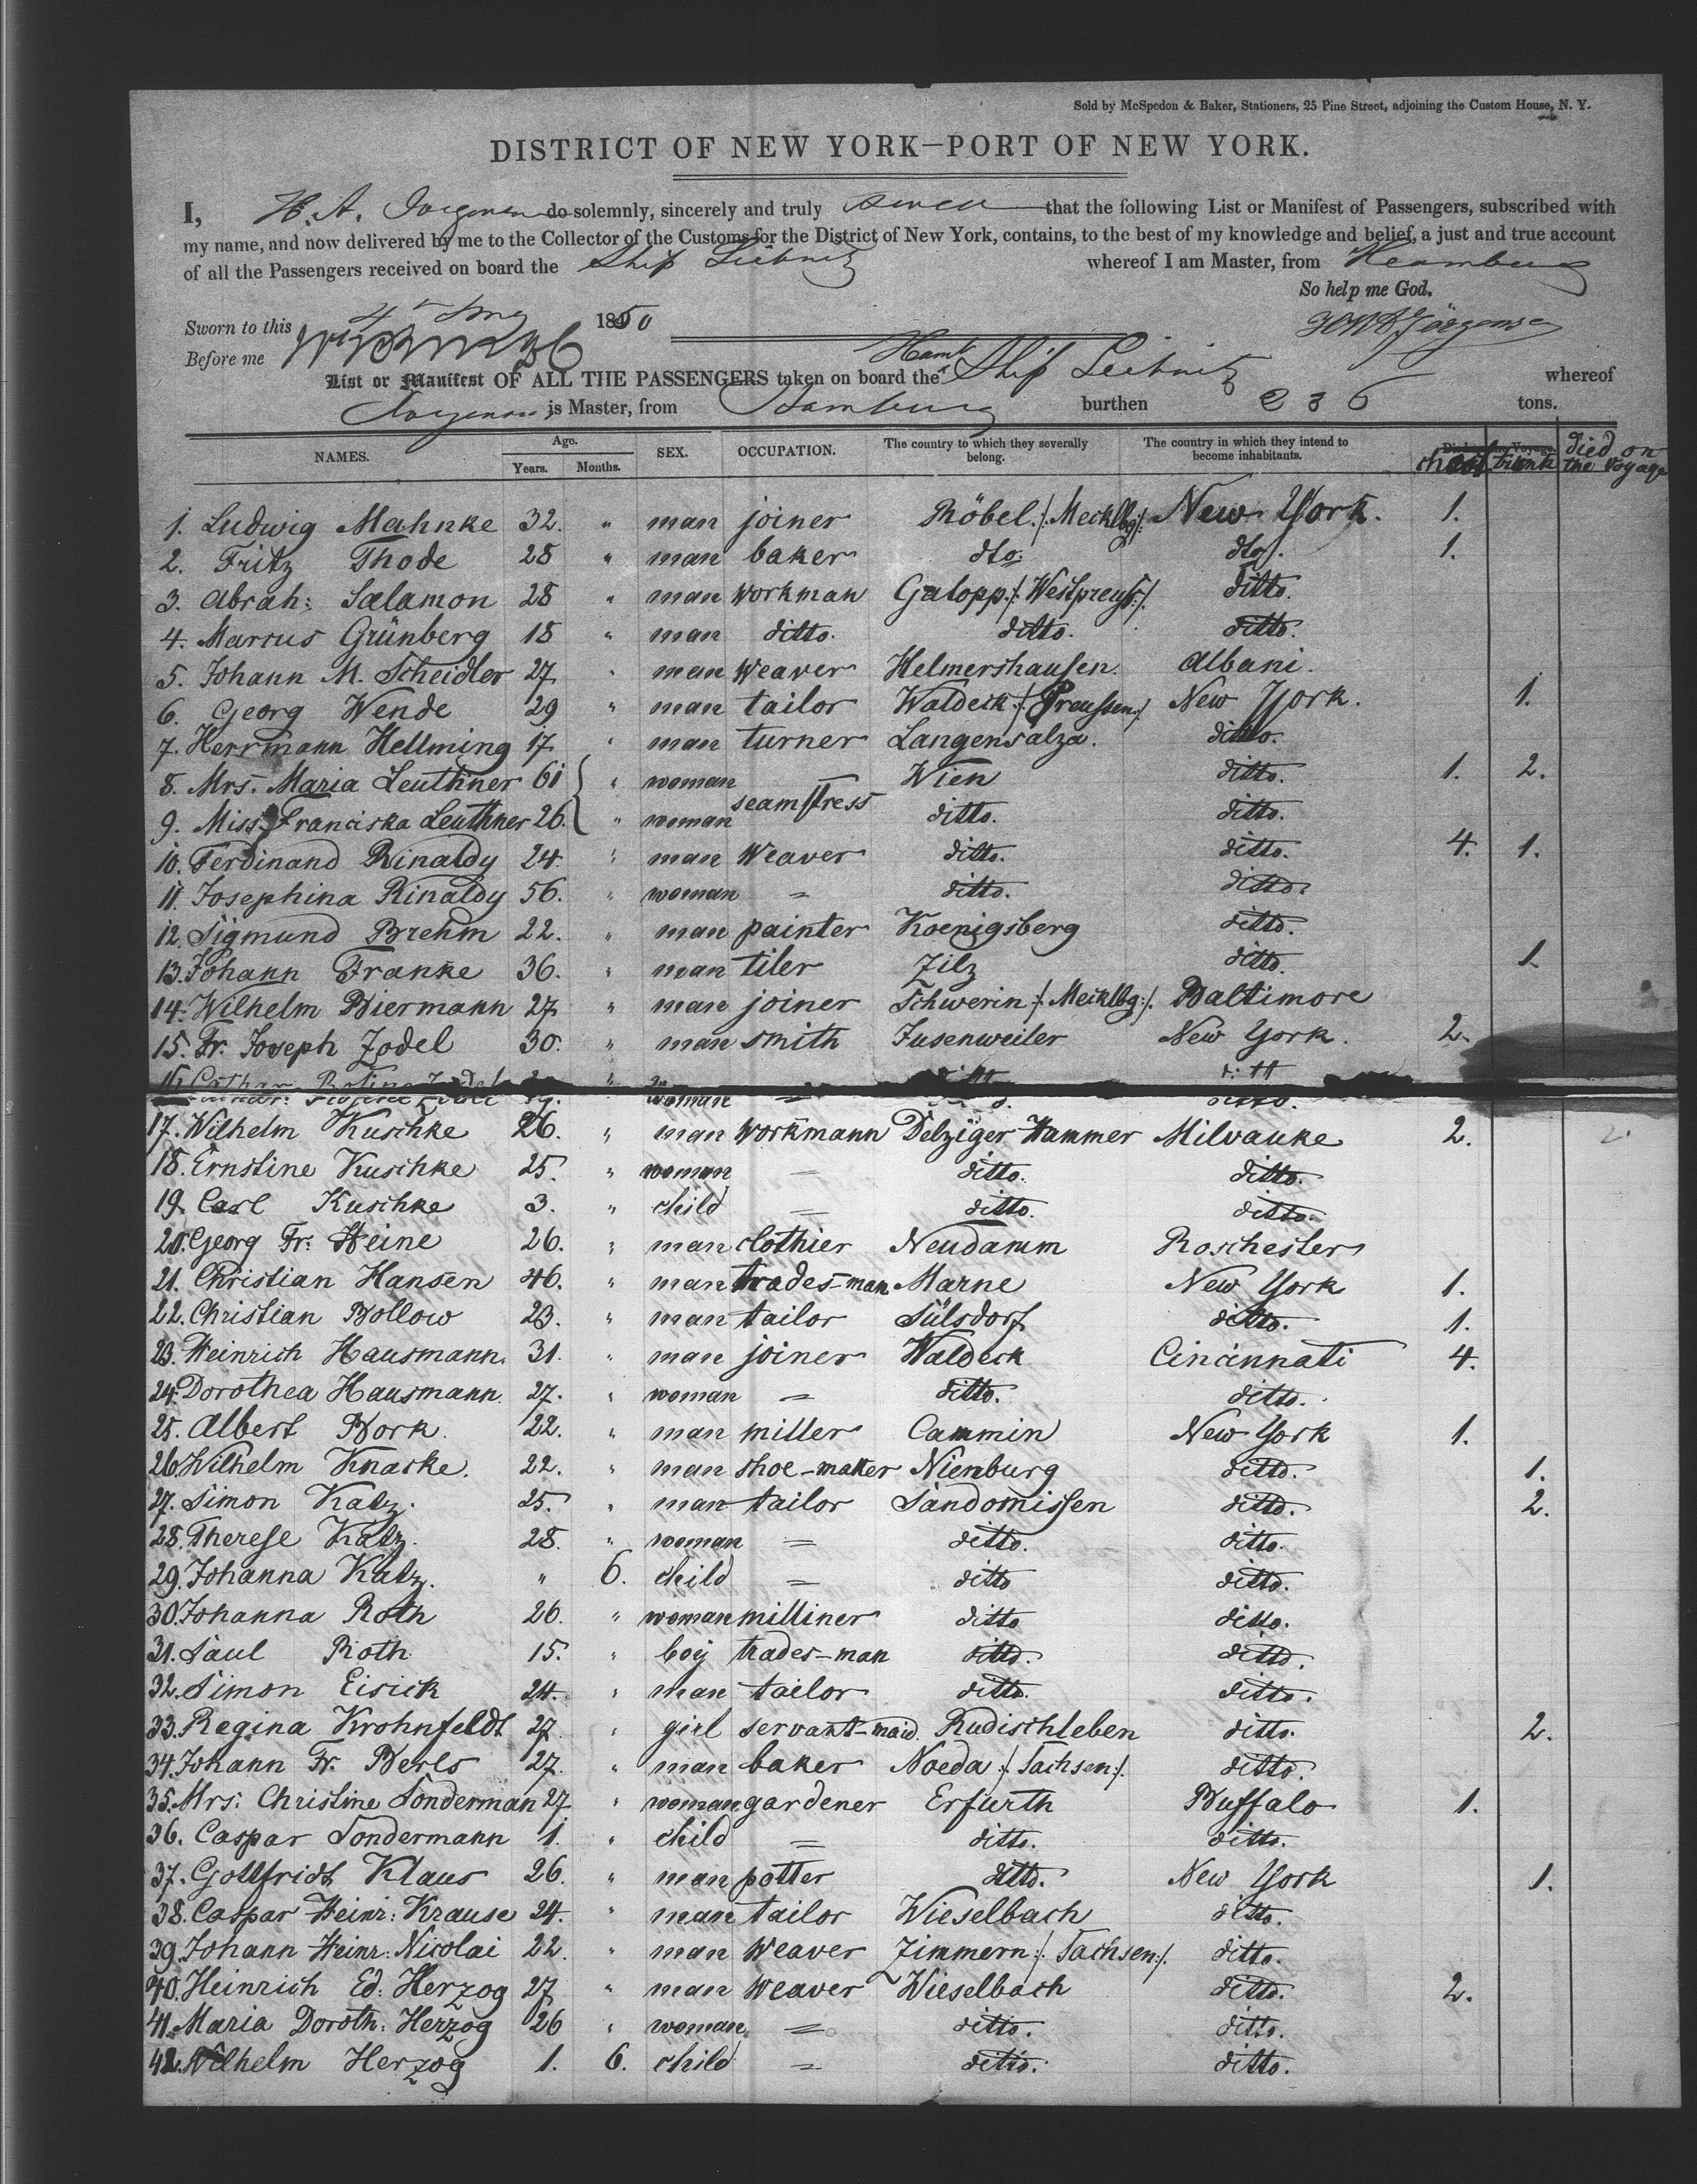 Sold by McSpedon & Baker, Stationers, 25 Pine Street, adjoining the Custom House, N. Y.
DISTRICT OF NEW YORK—PORT OF NEW YORK.
I, H. A. do solemnly, sincerely and truly that the following List or Manifest of Passengers, subscribed with
my name, and now delivered by me to the Collector of the Customs for the District of New York, contains, to the best of my knowledge and belief, a just and true account
of all the Passengers received on board the Ship Leibnitz whereof I am Master, from Hamburg
So help me God.
Sworn to this 4 1850
Before me
List or Manifest OF ALL THE PASSENGERS taken on board the Hamb Ship Leibnitz whereof
is Master, from Hamburg burthen 236 tons.
NAMES. Age. Years. Months. SEX. OCCUPATION. The country to which they severally belong. The country in which they intend to become inhabitants. chest trunk Died on the voyage
1. Ludwig Mahnke 32. " man joiner Röbel /: Mecklbg :/ New York. 1.
2. Fritz Thode 28 " man baker dto. dto. 1.
3. Abrah: Salamon 28 " man workman Galopp /: Westpreuß :/ ditto.
4. Marcus Grünberg 18 " man ditto. ditto. ditto.
5. Johann M. Scheidler 27 " man weaver Helmershausen. Albani.
6. Georg Wende 29 " man tailor Waldeck /: Preussen :/ New York. 1.
7. Herrmann Hellming 17 " man turner Langensalza. ditto.
8. Mrs. Maria Leuthner 61 " woman Wien ditto. 1. 2.
9. Miss. Franciska Leuthner 26. " woman seamstress ditto. ditto.
10. Ferdinand Rinaldy 24. " man weaver ditto. ditto. 4. 1.
11. Josephina Rinaldy 56. " woman = ditto. ditto.
12. Sigmund Brehm 22. " man painter Koenigsberg ditto.
13. Johann Franke 36. " man tiler Zilz ditto. 1.
14. Wilhelm Biermann 27 " man joiner Schwerin /: Mecklbg :/ Baltimore
15. Fr. Joseph Zodel 30. " man smith Jusenweiler New York. 2.
16. Cathar: Zodel woman ditto.
17. Wilhelm Kuschke 26. " man workmann Delziger Hammer Milvauke 2.
18. Ernstine Kuschke 25. " woman = ditto. ditto.
19. Carl Kuschke 3. " child = ditto. ditto.
20. Georg Fr: Heine 26. " man clothier Neudamm Roschester
21. Christian Hansen 46. " man trades-man Marne New York 1.
22. Christian Bollow 23. " man tailor Sülsdorf ditto. 1.
23. Heinrich Hausmann. 31. " man joiner Waldeck Cincinnati 4.
24. Dorothea Hausmann. 27. " woman = ditto. ditto.
25. Albert Bork. 22. " man miller Cammin New York 1.
26. Wilhelm Knacke. 22. " man shoe-maker Nienburg ditto. 1.
27. Simon Katz. 25. " man tailor Sandomissen ditto. 2.
28. Therese Katz. 28. " woman = ditto. ditto.
29. Johanna Katz. " 6. child = ditto ditto.
30. Johanna Roth 26. " woman milliner ditto ditto.
31. Saul Roth 15. " boy trades-man ditto. ditto.
32. Simon Eisick 24. " man tailor ditto. ditto.
33. Regina Krohnfeldt 27 " girl servant-maid. Rudischleben ditto. 2.
34. Johann Fr. Berls 27. " man baker Noeda /: Sachsen :/ ditto.
35. Mrs: Christine Sonderman 27 " woman gardener Erfurth Buffalo 1.
36. Caspar Sondermann 1. " child = ditto. ditto.
37. Gottfridt Klaus 26. " man potter ditto. New York 1.
38. Caspar Heinr: Krause 24. " man tailor Wieselbach ditto.
39. Johann Heinr: Nicolai 22. " man weaver Zimmern /: Sachsen :/ ditto.
40. Heinrich Ed: Herzog 27 " man weaver Wieselbach ditto. 2.
41. Maria Doroth: Herzog 26 " woman = ditto. ditto.
42. Wilhelm Herzog 1. 6. child = ditto. ditto.